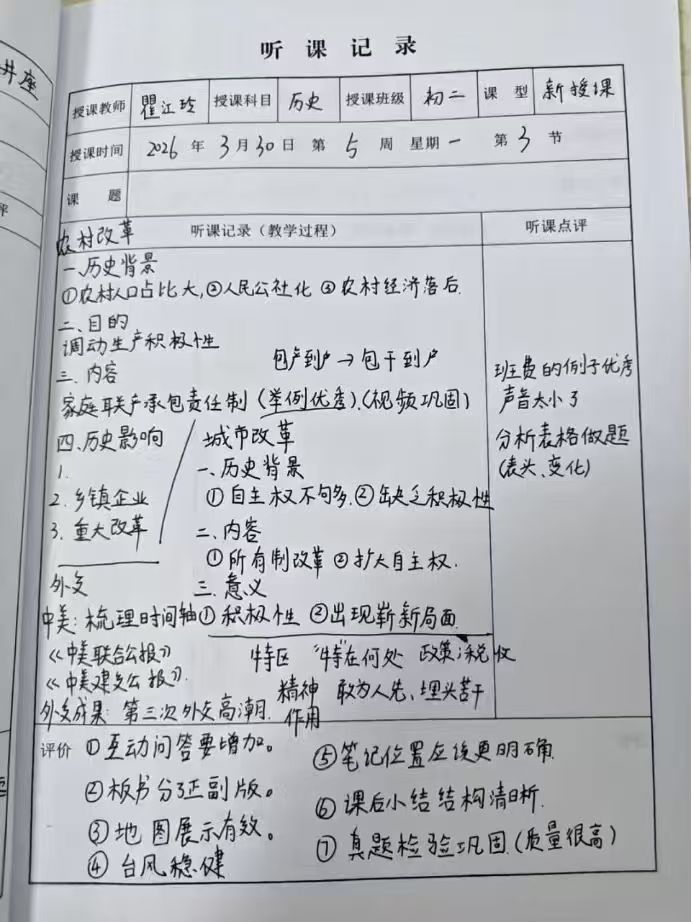 井座
评
听课记录
授课教师 瞿江玲 授课科目 历史 授课班级 初二 课型 新授课
授课时间 2026年3月30日 第5周 星期一 第3节
课题
农村改革 听课记录（教学过程） 听课点评
一、历史背景
①农村人口占比大,②人民公社化 ③农村经济落后.
二、目的
调动生产积极性
包产到户→包干到户
三、内容
家庭联产承包责任制(举例优秀).(视频巩固)
四.历史影响
1.
2.乡镇企业
3.重大改革
城市改革
一、历史背景
①自主权不够多.②缺乏积极性
二、内容
①所有制改革 ②扩大自主权.
三、意义
①积极性 ②出现崭新局面.
外交
中美：梳理时间轴
《中美联合公报》
《中美建交公报》.
外交成果：第三次外交高潮.
特区 "特"在何处 政策；税收
精神 敢为人先、埋头苦干
作用
班费的例子优秀
声音太小了
分析表格做题
(表头、变化)
评价 ①互动问答要增加。
②板书分了正副版。
③地图展示有效。
④台风稳健
⑤笔记位置应该更明确.
⑥课后小结结构清晰.
⑦真题检验巩固.(质量很高)